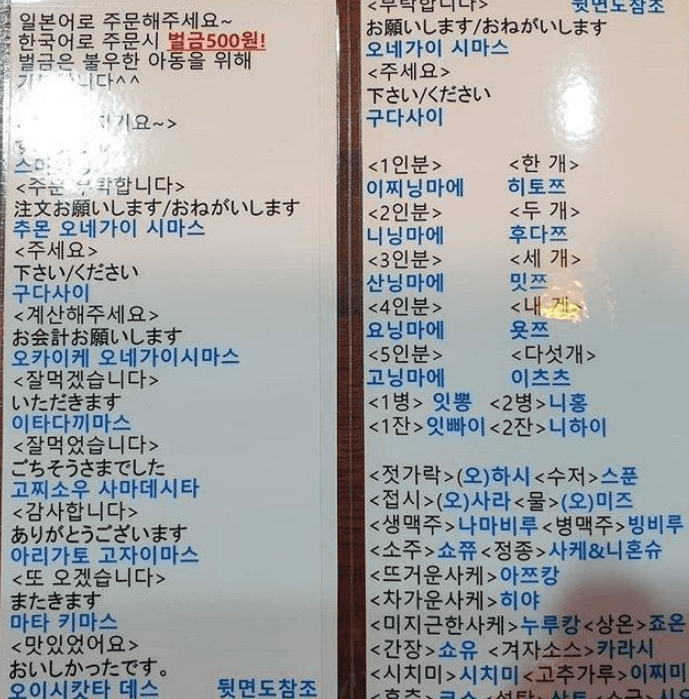 일본어로 주문해주세요~
한국어로 주문시 벌금500원!
벌금은 불우한 아동을 위해
<주문 부탁합니다>
注文お願いします/おねがいします
추몬 오네가이 시마스
<주세요>
下さい/ください
구다사이
<계산해주세요>
お会計お願いします
오카이케 오네가이시마스
<잘먹겠습니다>
いただきます
이타다끼마스
<잘먹었습니다>
ごちそうさまでした
고찌소우 사마데시타
<감사합니다>
ありがとうございます
아리가토 고자이마스
<또 오겠습니다>
またきます
마타 키마스
<맛있었어요>
おいしかったです。
오이시캇타 데스 뒷면도참조
<부탁합니다> 뒷면도참조
お願いします/おねがいします
오네가이 시마스
<주세요>
下さい/ください
구다사이
<1인분> <한 개>
이찌닝마에 히토쯔
<2인분> <두 개>
니닝마에 후다쯔
<3인분> <세 개>
산닝마에 밋쯔
<4인분> <내 개>
요닝마에 욧쯔
<5인분> <다섯개>
고닝마에 이츠츠
<1병> 잇뽕 <2병>니홍
<1잔>잇빠이 <2잔>니하이
<젓가락>(오)하시 <수저>스푼
<접시>(오)사라 <물>(오)미즈
<생맥주>나마비루 <병맥주>빙비루
<소주>쇼쮸 <정종>사케&니혼슈
<뜨거운사케>아쯔캉
<차가운사케>히야
<미지근한사케>누루캉 <상온>죠온
<간장>쇼유 <겨자소스>카라시
<시치미>시치미 <고추가루>이찌미